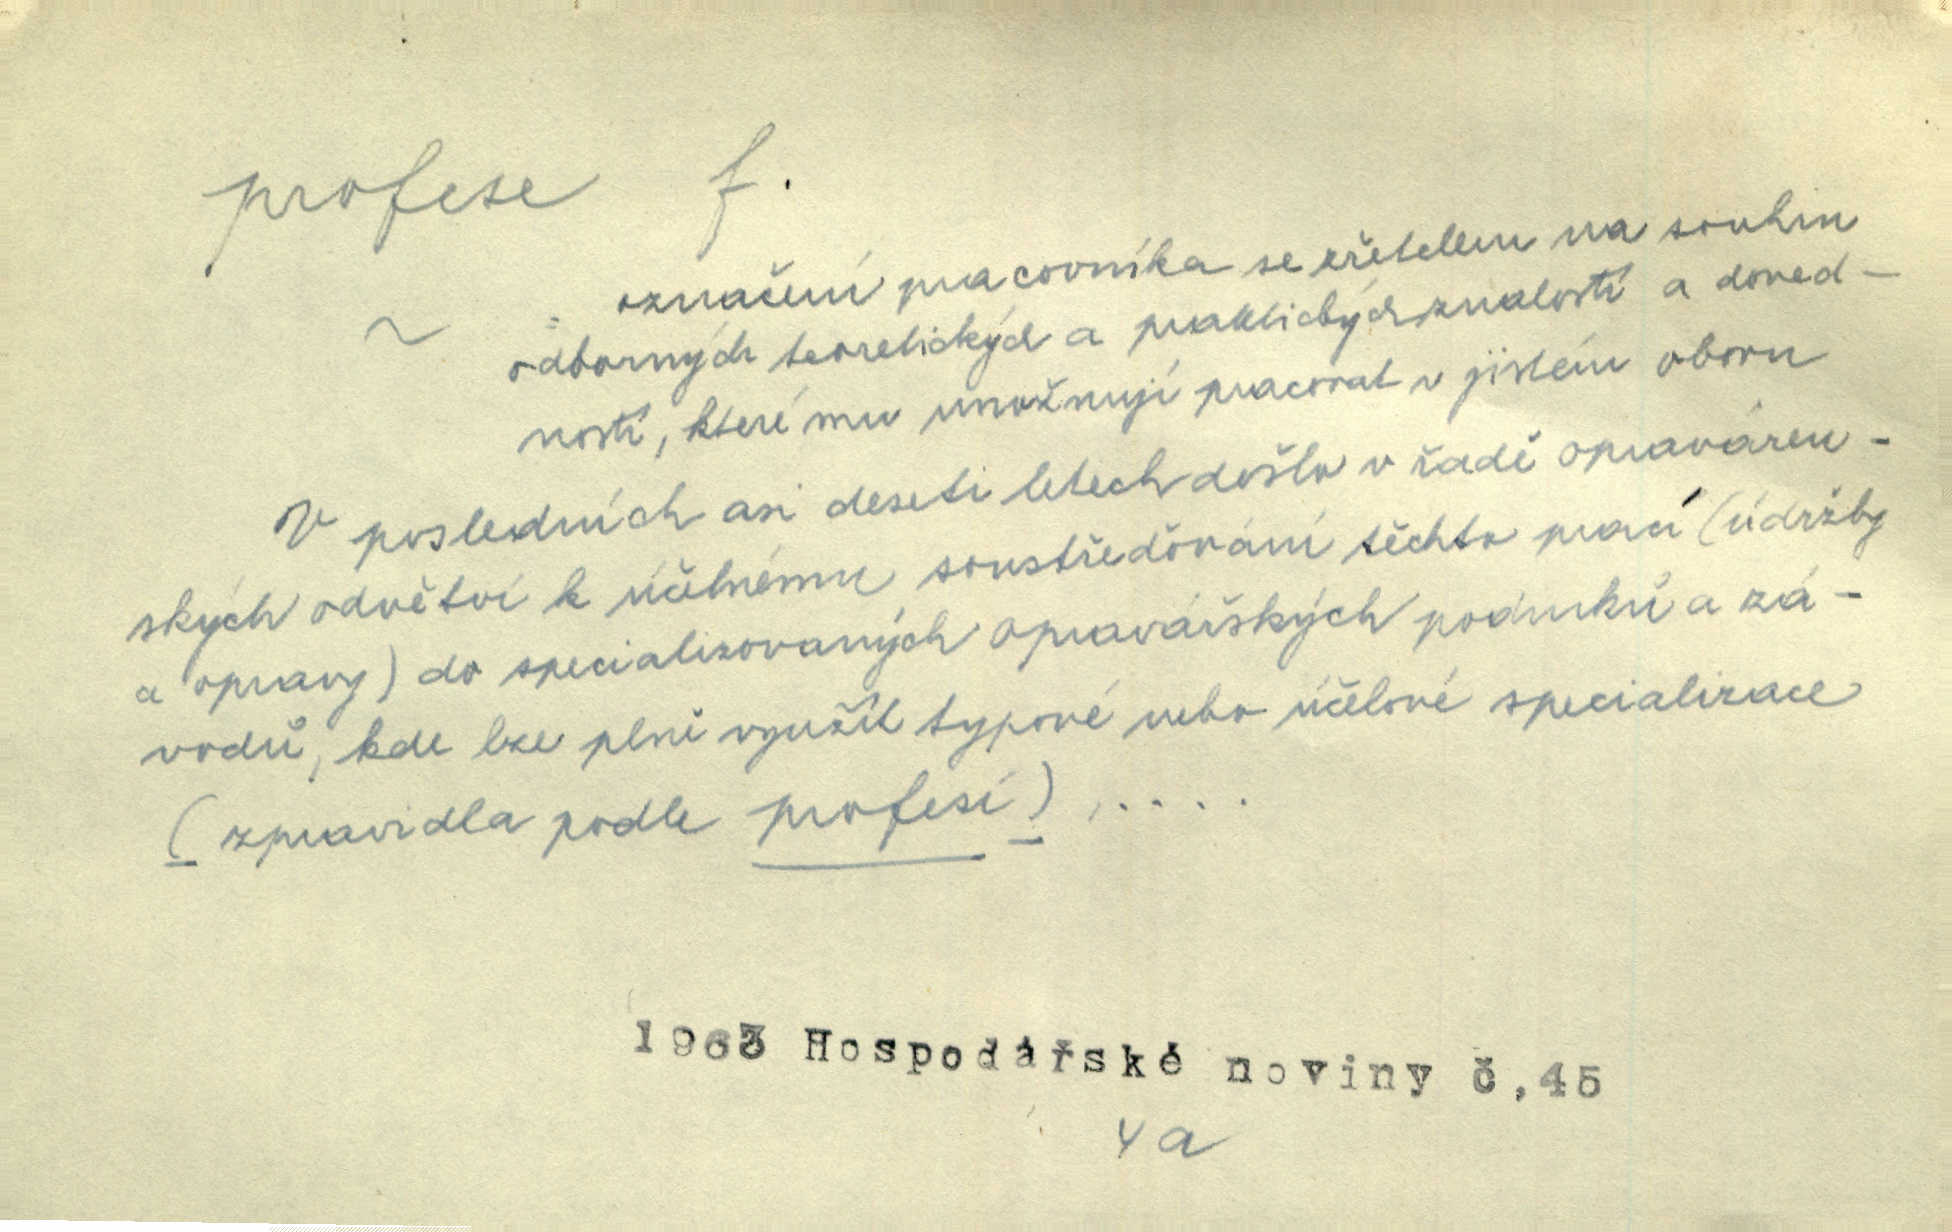 profese f.
~ = označení pracovníka se zřetelem na souhrn
odborných teoretických a praktických znalostí a doved-
ností, které mu umožnují pracovat v jistém oboru
V posledních asi deseti letech došlo v řadě opraváren-
ských odvětví k účelnému soustřeďování těchto prací (údržby
a opravy) do specializovaných opravářských podniků a zá-
vodů, kde lze plně využít typové nebo účelové specializace
(zpravidla podle profesí), ....
1963 Hospodářské noviny č,45
4a